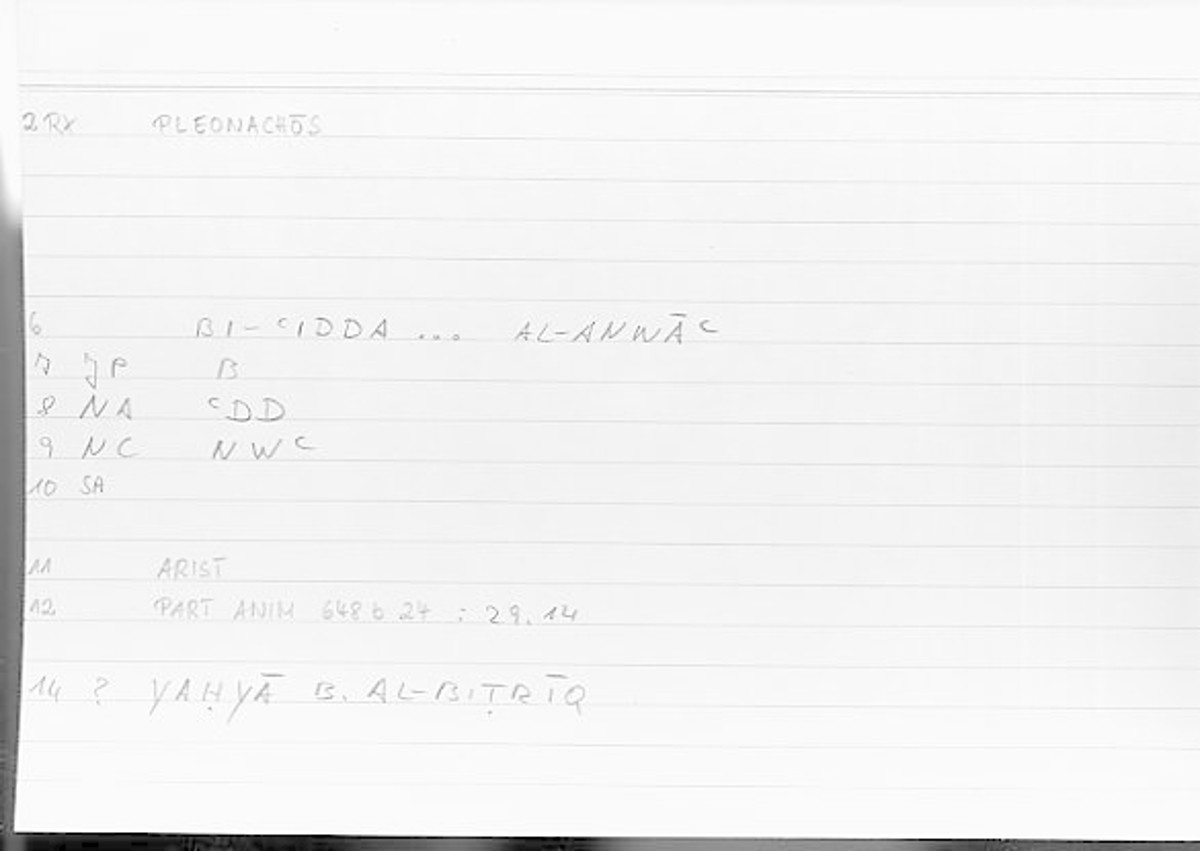 2 RX PLEONACHŌS
6 BI-ᶜIDDA ... AL-ANWĀᶜ
7 JP B
8 NA ᶜDD
9 NC NWᶜ
10 SA
11 ARIST
12 PART ANIM 648 b 24 : 29.14
14 ? YAḤYĀ B. AL-BIṬRĪQ